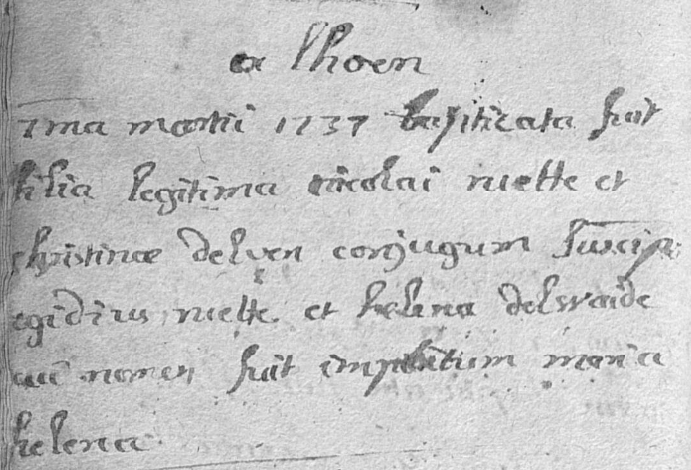 a lhoen
7ma martii 1737 baptizata fuit
filia legitima nicolai nielle et
christinæ delven conjugum Suscip:
egidius nielle et helena delvaide
cui nomen fuit impositum maria
helena